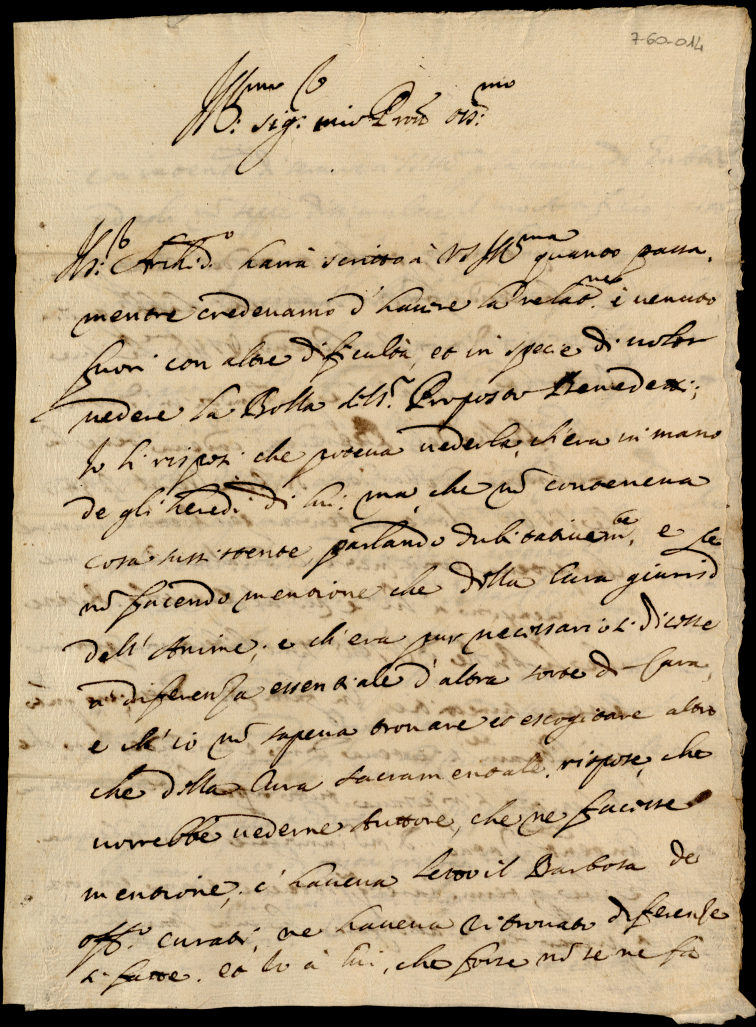 7-60-014
Ill.mo
Sig.r mio Pron Oss.mo
Archid.o havrà scritto à VS Ill.ma quanto passa,
mentre credevamo d'havere la relat.ne è venuto
fuori con altre difficultà, et in specie di voler
vedere la Bolla del S.r Proposto Benedetti;
Io li risposi che poteva vederla, ch'era in mano
de gli heredi di lui; ma, che nõ conteneva
cosa sussistente, parlando dubitativem.te, e se
nõ facendo mentione che della Cura giurisd
dell'Anime; e ch'era pur necessario si dicesse
à diferenza essentiale d'altra sorte di Cura,
e ch'io nõ sapeva trovare et escogitare altro
che della Cura sacramentale. rispose, che
vorrebbe vederne Auttore, che ne facesse
mentione, c'haveva letto il Barbosa de
off.o curati, ne haveva ritrovato diferenze
si fatte. et Io à lui, che forse nõ se ne fa